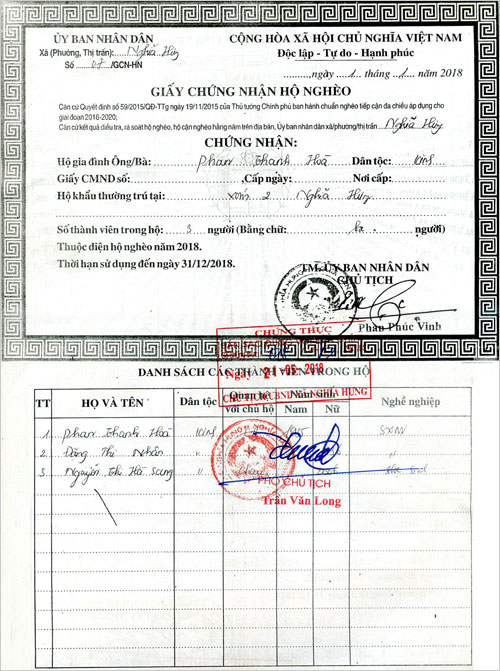 ỦY BAN NHÂN DÂN
Xã (Phường, Thị trấn): Nghĩa Hưng
Số 07 /GCN-HN
CỘNG HÒA XÃ HỘI CHỦ NGHĨA VIỆT NAM
Độc lập - Tự do - Hạnh phúc
ngày 1 tháng 1 năm 2018
GIẤY CHỨNG NHẬN HỘ NGHÈO
Căn cứ Quyết định số 59/2015/QĐ-TTg ngày 19/11/2015 của Thủ tướng Chính phủ ban hành chuẩn nghèo tiếp cận đa chiều áp dụng cho
giai đoạn 2016-2020;
Căn cứ kết quả điều tra, rà soát hộ nghèo, hộ cận nghèo hằng năm trên địa bàn, Ủy ban nhân dân xã/phường/thị trấn Nghĩa Hưng
CHỨNG NHẬN:
Hộ gia đình Ông/Bà: Phan Thanh Hoà Dân tộc: Kinh
Giấy CMND số: , Cấp ngày: Nơi cấp:
Hộ khẩu thường trú tại: xóm 2 Nghĩa Hưng
Số thành viên trong hộ: 3 người (Bằng chữ: ba người)
Thuộc diện hộ nghèo năm 2018.
Thời hạn sử dụng đến ngày 31/12/2018.
TM. ỦY BAN NHÂN DÂN
CHỦ TỊCH
Phan Phúc Vinh
CHỨNG THỰC
Ngày 21-05-2018
CHỦ TỊCH UBND XÃ NGHĨA HƯNG
DANH SÁCH CÁC THÀNH VIÊN TRONG HỘ
TT HỌ VÀ TÊN Dân tộc Quan hệ với chủ hộ Năm sinh Nam Nữ Nghề nghiệp
1 Phan Thanh Hoà Kinh SXNN
2 Đặng Thị Nhân " "
3 Nguyễn Thị Hà Sang " cháu
PHÓ CHỦ TỊCH
Trần Văn Long